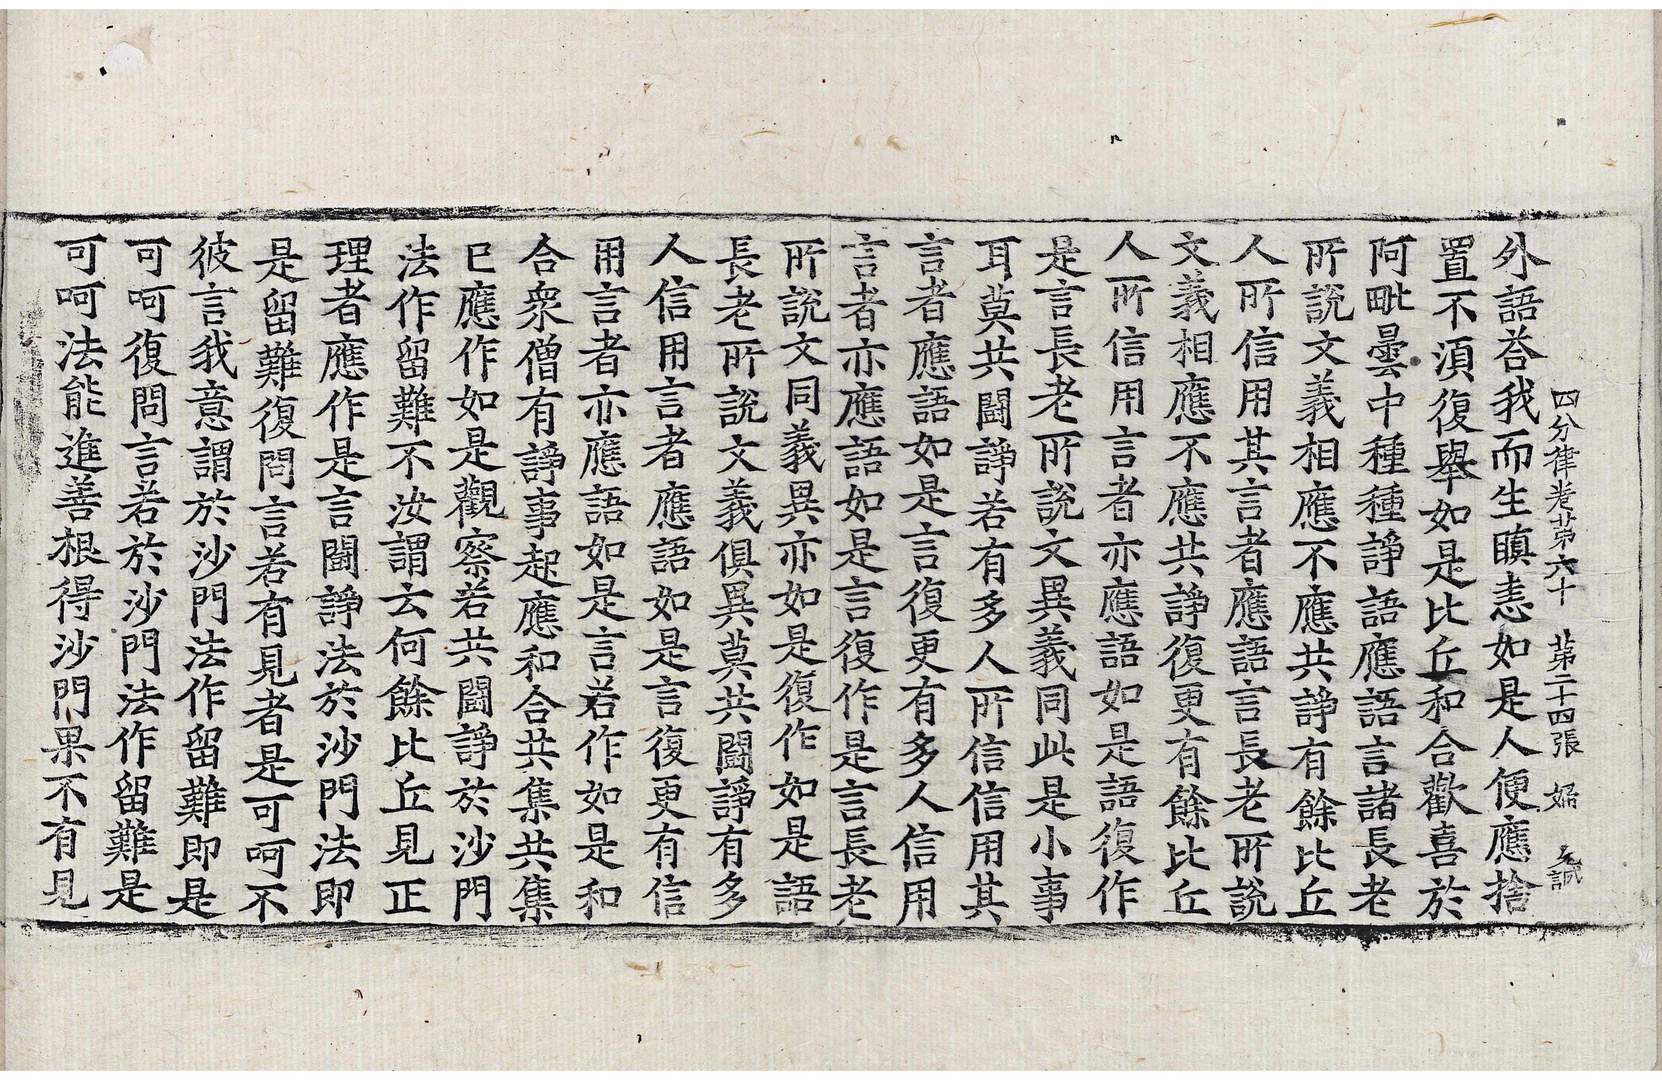 四分律卷第六十 第二十四張 姤 元誠
外語荅我而生瞋恚如是人便應捨
置不須復舉如是比丘和合歡喜於
阿毗曇中種種諍語應語言諸長老
所說文義相應不應共諍有餘比丘
人所信用其言者應語言長老所說
文義相應不應共諍復更有餘比丘
人所信用言者亦應語如是語復作
是言長老所說文異義同此是小事
耳莫共鬪諍若有多人所信信用其
言者應語如是言復更有多人信用
言者亦應語如是言復作是言長老
所說文同義異亦如是復作如是語
長老所說文義俱異莫共鬪諍有多
人信用言者應語如是言復更有信
用言者亦應語如是言若作如是和
合衆僧有諍事起應和合共集共集
已應作如是觀察若共鬪諍於沙門
法作留難不汝謂云何餘比丘見正
理者應作是言鬪諍法於沙門法即
是留難復問言若有見者是可呵不
彼言我意謂於沙門法作留難即是
可呵復問言若於沙門法作留難是
可呵法能進善根得沙門果不有見